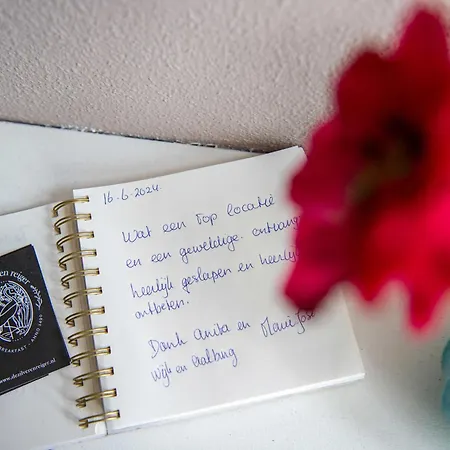 16-6-2024
Wat een Top locatie
en een geweldige ontvangs
heerlijk geslapen en heerlij
ontbeten.
Dank Anita en Marie José
Wijk en Aalburg
en reiger
BREAKFAST · ANNO
www.dezilverenreiger.nl